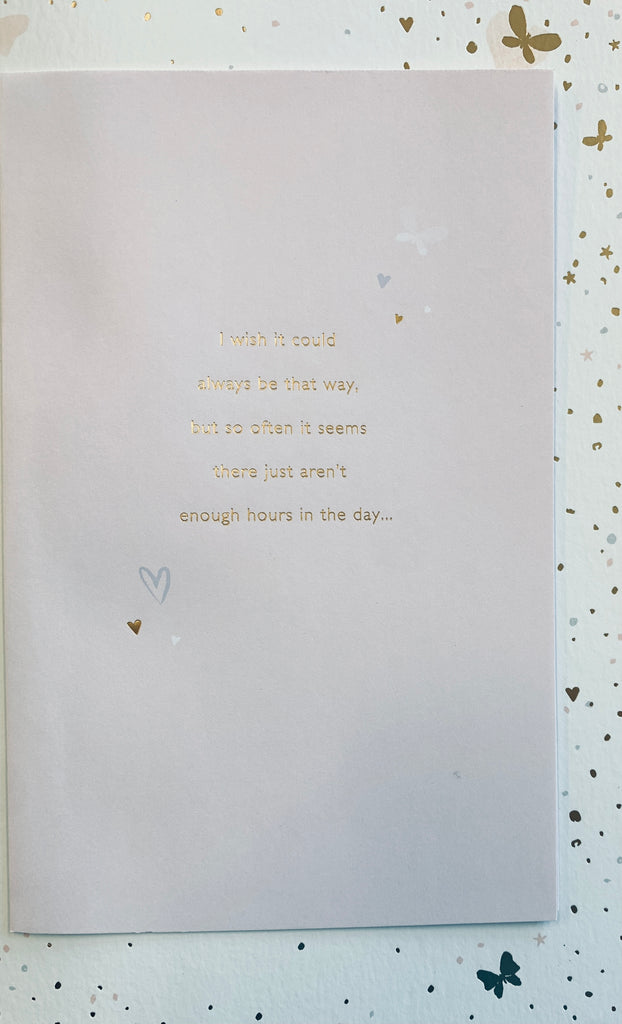 I wish it could
always be that way,
but so often it seems
there just aren't
enough hours in the day...